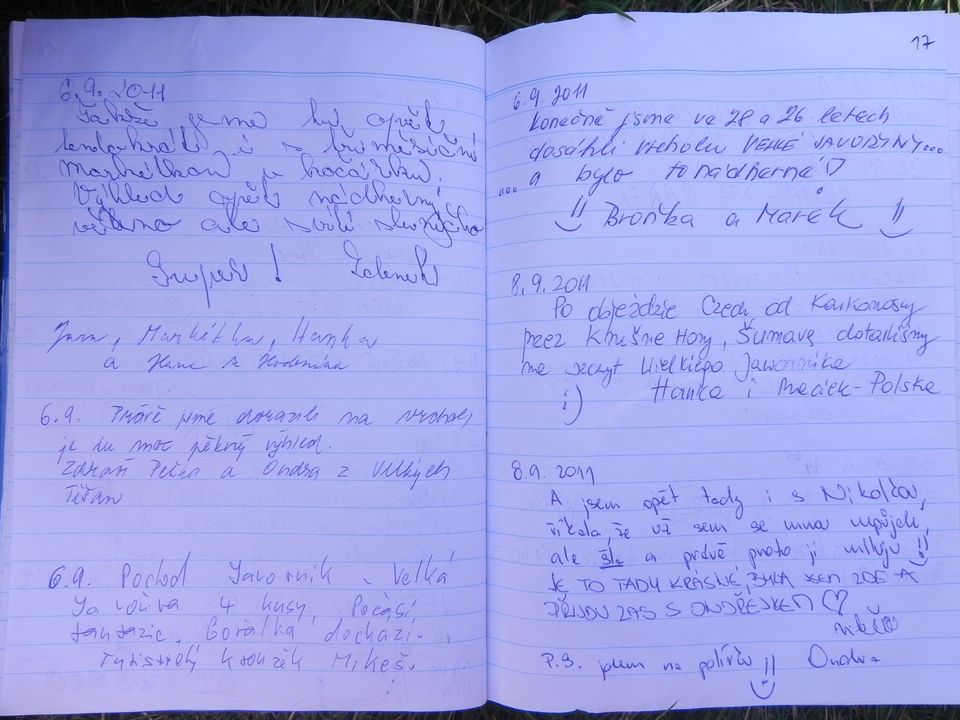 6.9.2011
Takže jsme tu opět
tentokrát i s tříměsíční
Markétkou v kočárku.
Výhled opět nádherný,
ale svítí sluníčko
Super! Zdeněk
Jana, Markétka, Hanka
a Hana z Hodonína
6.9. Právě jsme dorazili na vrchol,
je tu moc pěkný výhled.
Zdraví Petra a Ondra z Velkých
Těšan
6.9. Pochod Javorník - Velká
Javořina 4 kusy, Počasí
fantazie, Gořalka dochází.
Turistický kroužek Mikeš.
17
6.9 2011
Konečně jsme ve 28 a 26 letech
dosáhli vrcholu VELKÉ JAVOŘINY...
... a bylo to nádherné♡
Broňka a Marek
8.9.2011
Po objeździe Czech od Karkonoszy
przez Krušne Hory, Šumavę dotarliśmy
na szczyt Wielkiego Jawornika
:) Hanka i Maciek - Polska
8.9.2011
A jsem opět tady i s Nikolčou,
říkala, že už sem se mnou nepůjde,
ale šla a právě proto ji miluju
JE TO TADY KRÁSNÉ, BYLA JSEM ZDE A
PŘIJDU ZAS S ONDŘEJKEM ♡
P.S. jdem na polívku Ondra